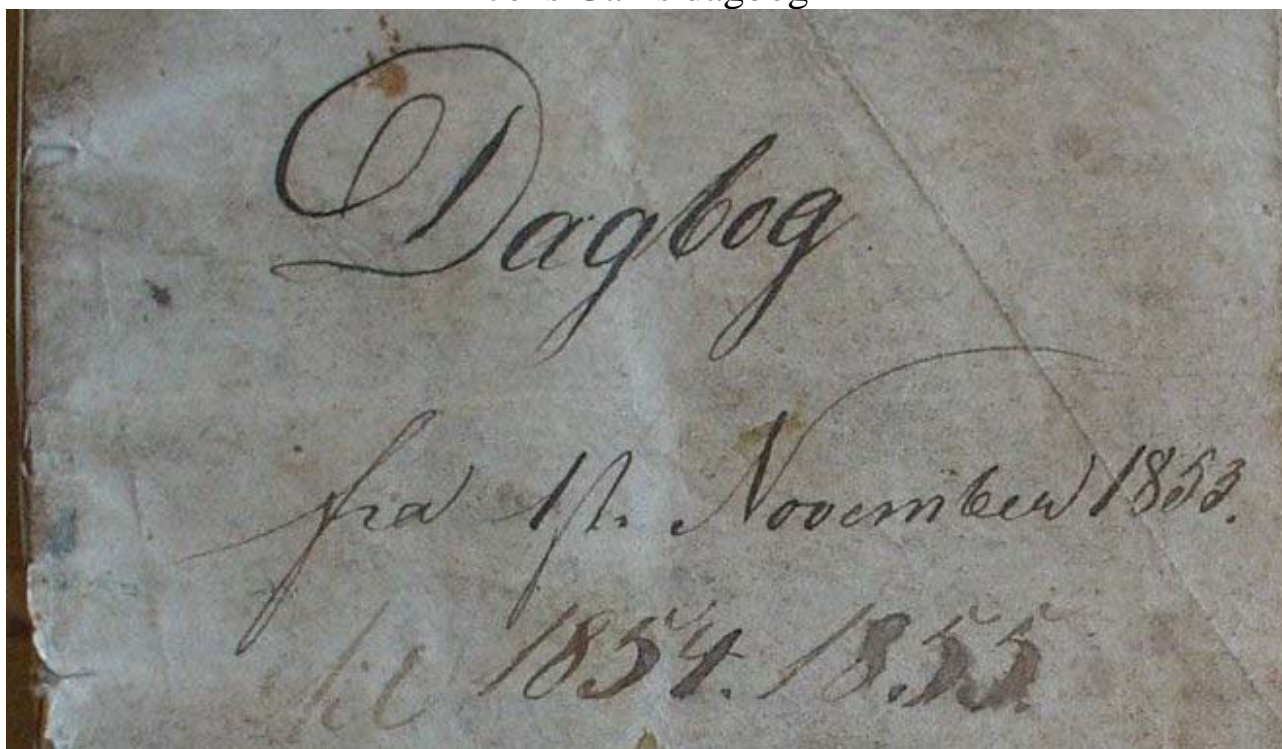 dagbog
Dagbog
fra 1st. November 1853.
til 1854. 1855.